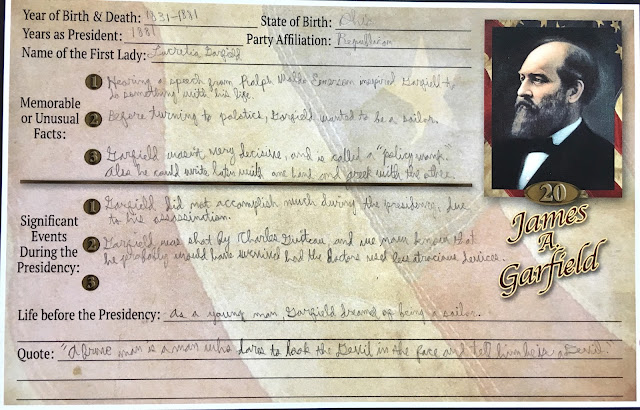 Year of Birth & Death: 1831-1881
State of Birth: Ohio
Years as President: 1881
Party Affiliation: Republican
Name of the First Lady: Lucretia Garfield
Memorable or Unusual Facts:
1 Hearing a speech from Ralph Waldo Emerson inspired Garfield to
do something with his life.
2 Before turning to politics, Garfield wanted to be a sailor.
3 Garfield wasn't very decisive, and is called a "policy wonk."
Also he could write latin with one hand and greek with the other.
Significant Events During the Presidency:
1 Garfield did not accomplish much during the presidency, due
to his assassination.
2 Garfield was shot by Charles Guiteau and we now know that
he probably would have survived had the doctors used less atrocious devices.
3
20
James
A.
Garfield
Life before the Presidency: As a young man, Garfield dreamed of being a sailor.
Quote: "A brave man is a man who dares to look the Devil in the face and tell him he is a Devil."